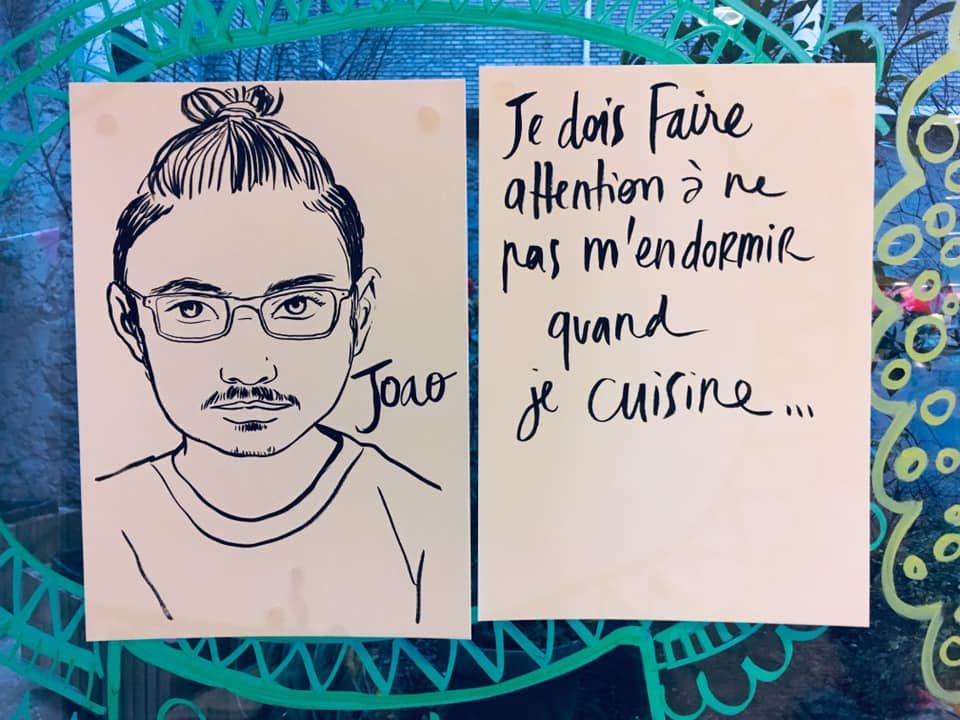 Joao
Je dois Faire
attention à ne
pas m'endormir
quand
je cuisine...